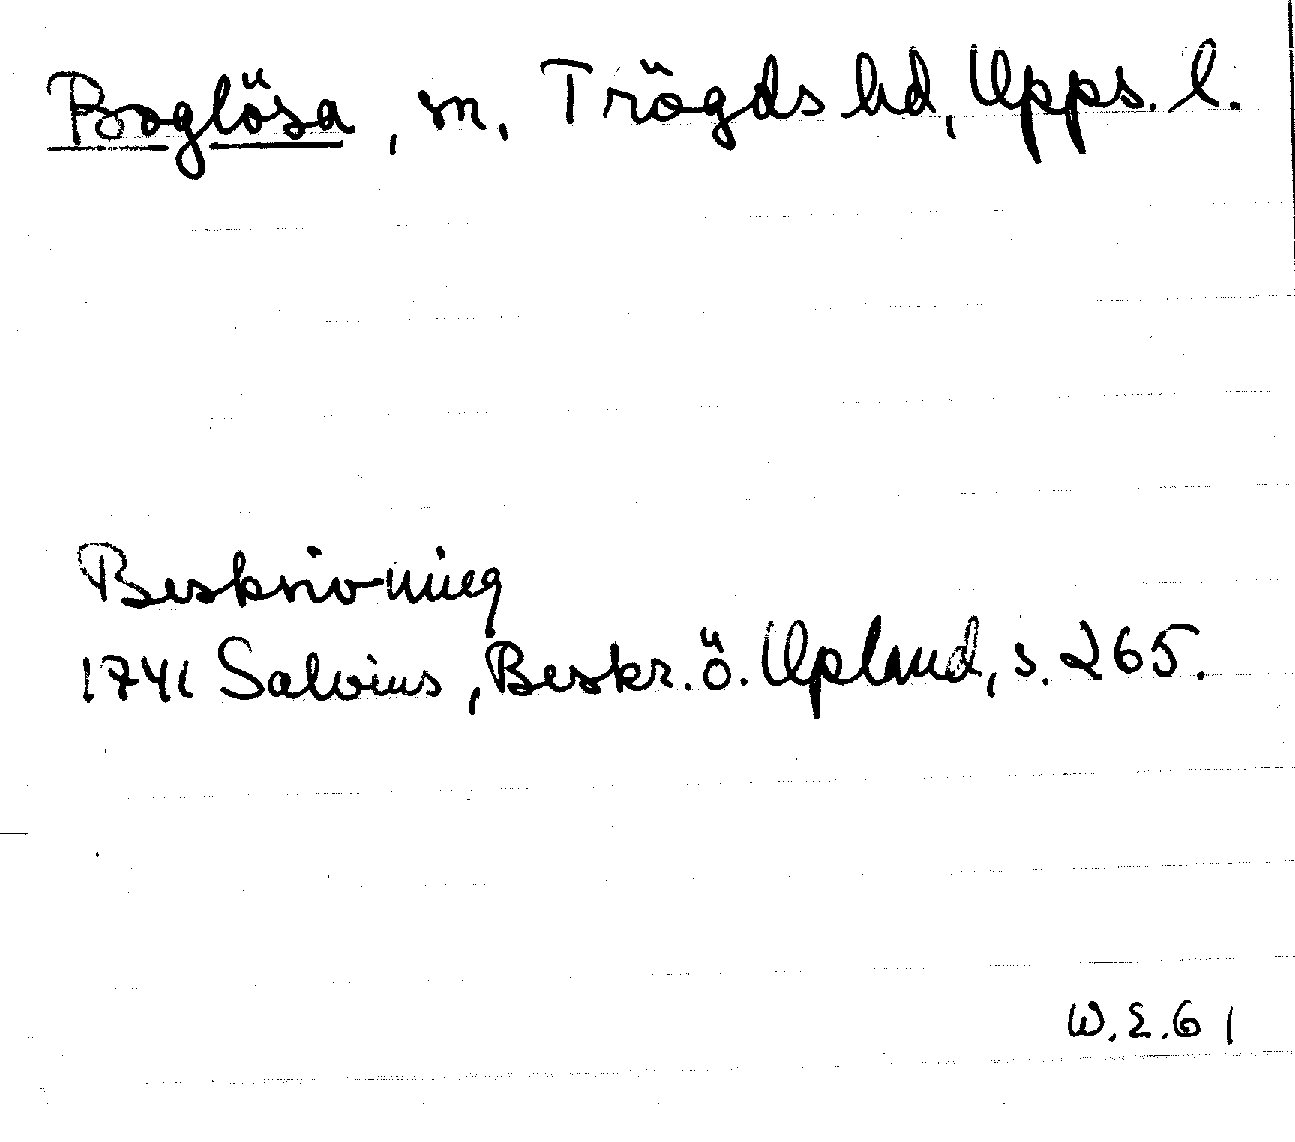 Boglösa, sn, Trögds hd, Upps. l.
Beskrivning
1741 Salvius, Beskr. ö. Upland, s. 265.
W.E.61